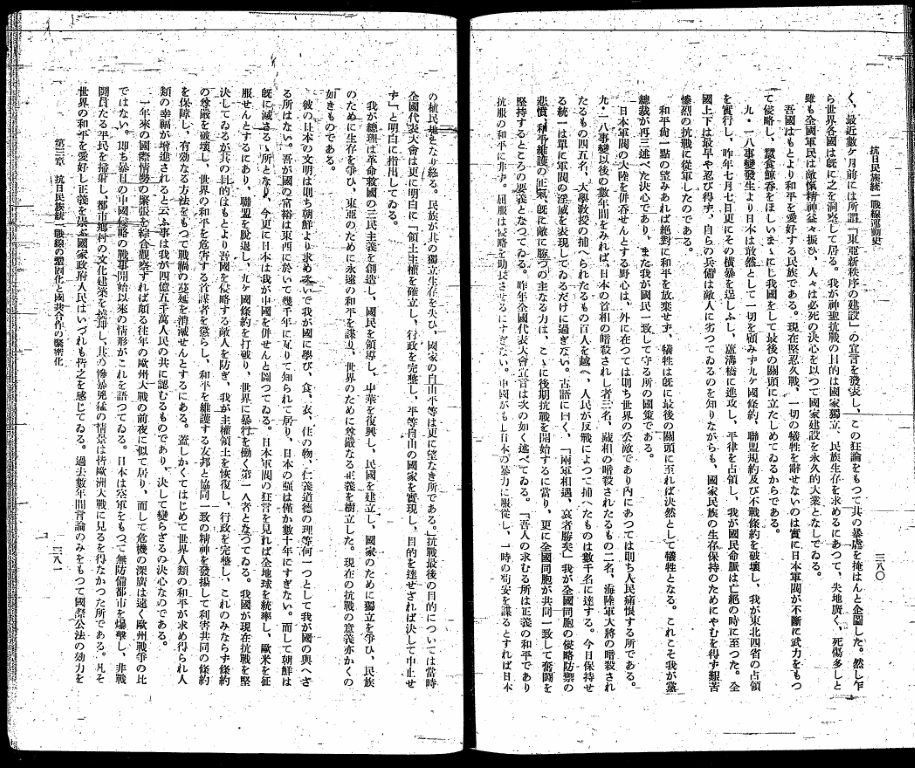 抗日民族統一戰線運動史
三八〇
く、最近數ケ月前には所謂「東亞新秩序の建設」の宣言を發表し、この狂論をもつて其の暴虐を掩はんと企圖した。然し乍
ら世界各國は夙にこの洞察して居る。我が神聖抗戰の目的は國家獨立、民族生存を求めるにあつて、失地廣く、死傷多しと
雖も全國軍民は敵愾精神益々振ひ、人々は必死の決心を以つて國家建設を永久的大業となしてゐる。
吾國はもとより和平を愛好する民族である。現在堅忍久戰、一切の犧牲を辭せないのは實に日本軍閥が不斷に武力をもつ
て侵略し、蠶食鯨呑をほしいまゝにし我國をして最後の關頭に立たしめてゐるからである。
九・一八事變發生より日本は敢然として一切を顧みず九ケ國條約、聯盟規約及び不戰條約を破壞し、我が東北四省の占領
を實行し、昨年七月七日更にその橫暴を逞しふし、蘆溝橋に進攻し、平津を占領し、我が國民命脈は亡絕の時に至つた。全
國上下は最早や忍び得ず、自らの兵備は敵人に劣つてゐるのを知りながらも、國家民族の生存保持のためにやむを得ず艱苦
慘烈の抗戰に從軍したのである。
和平尙一點の望みあれば絕對に和平を放棄せず、犧牲は旣に最後の關頭に至れば決然として犧牲となる。これこそ我が黨
總裁が再三述べた決心であり、また我が國民一致して守る所の國策である。
日本軍閥の大陸を併呑せんとする野心は、外に在つては則ち世界の公敵であり內にあつては則ち人民痛恨する所である。
九・一八事變以後の數年間をみれば、日本の首相の暗殺されし者三名、藏相の暗殺されたるもの二名、海陸軍大將の暗殺され
たるもの四五名、大學敎授の捕へられたるもの百人を越へ、人民が反戰によつて捕へたものは數千名に達する。今日保持せ
る統一は單に軍閥の淫威を表現してゐるだけに過ぎない。古語に曰く、「兩軍相遇、哀者勝矣」我が全國同胞の侵略防禦の
悲憤、和平維護の正氣、旣に敵に勝つの主なる力は、こゝに後期抗戰を開始するに當り、更に全國同胞が共同一致して奮鬪を
堅持するところの要義となつてゐる。昨年全國代表大會宣言は次の如く述べてゐる。「吾人の求むる所は正義の和平であり
抗服の和平に非ず。屈服は侵略を助長させるにすぎない。中國がもし日本の暴力に屈從し、一時の苟安を謀るとすれば日本
の植民地となり終る。民族が其の獨立生存を失ひ、國家の自由平等は更に望なき所である。」抗戰最後の目的については當時
全國代表大會は更に明白に「領土主權を確立し、行政を完整し、平等自由の國家を實現し、目的を達せざれば決して中止せ
ず」と明白に指出してゐる。
我が總理は革命救國の三民主義を創造し、國民を領導し、中華を復興し、民國を建立し、國家のために獨立を爭ひ、民族
のために生存を爭ひ、東亞のために永遠の和平を謀り、世界のために尊嚴なる正義を樹立した。現在の抗戰の意義亦かくの
如きものである。
彼の日本の文明は則ち朝鮮より求めないで我が國に學び、食、衣、住の物、仁義道德の理等何一つとして我が國の與へざ
る所はない。吾が國の富裕は東西に於いて幾千年に亙りて知られて居り、日本の强は僅か數十年にすぎない。而して朝鮮は
旣に滅さるゝ所となり、今更に日本は我が中國を併せんと圖つてゐる。日本軍閥の狂言を見れば全地球を統率し、歐米を征
服せんとするにあり、聯盟を脫退し、九ケ國條約を打破り、世界に暴行を働く第一人者となつてゐる。我國が現在抗戰を堅
決してゐるが其の目的はもとより吾國を侵略する敵人を防ぎ、我が主權領土を恢復し、行政を完整し、これのみならず條約
の尊嚴を破壞し、世界の和平を危害する首謀者を懲らし、和平を維護する友邦と協同一致の精神を發揚して利害共同の條約
を保障し、有効なる方法をもつて戰禍の蔓延を消滅せんとするにある。蓋しかくてはじめて世界人類の和平が求め得られ人
類の幸福が增進されると云ふ事は我が四億五千萬人民の共に認むるものであり、決して變らざるの決心なのである。
一年來の國際情勢の緊張を綜合觀察すれば頗る往年の歐洲大戰の前夜に似て居り、而して危機の深廣は遠く歐州戰爭の比
ではない。卽ち暴日の中國侵略の戰事開始以來の情形がこれを語つてゐる。日本は空軍をもつて無防備都市を爆擊し、非戰
鬪員たる平民を掃射し、都市鄕村の文化建築を燒却し、其の慘暴兇猛の情景は昔歐洲大戰に見るを得なかつた所である。凡そ
世界の和平を愛好し正義を崇ぶ國家政府人民はいづれも皆之を感じてゐる。過去數年間言論のみをもつて國際公法の効力を
第三章 抗日民族統一戰線の鞏固化と國共合作の緊密化
三八一